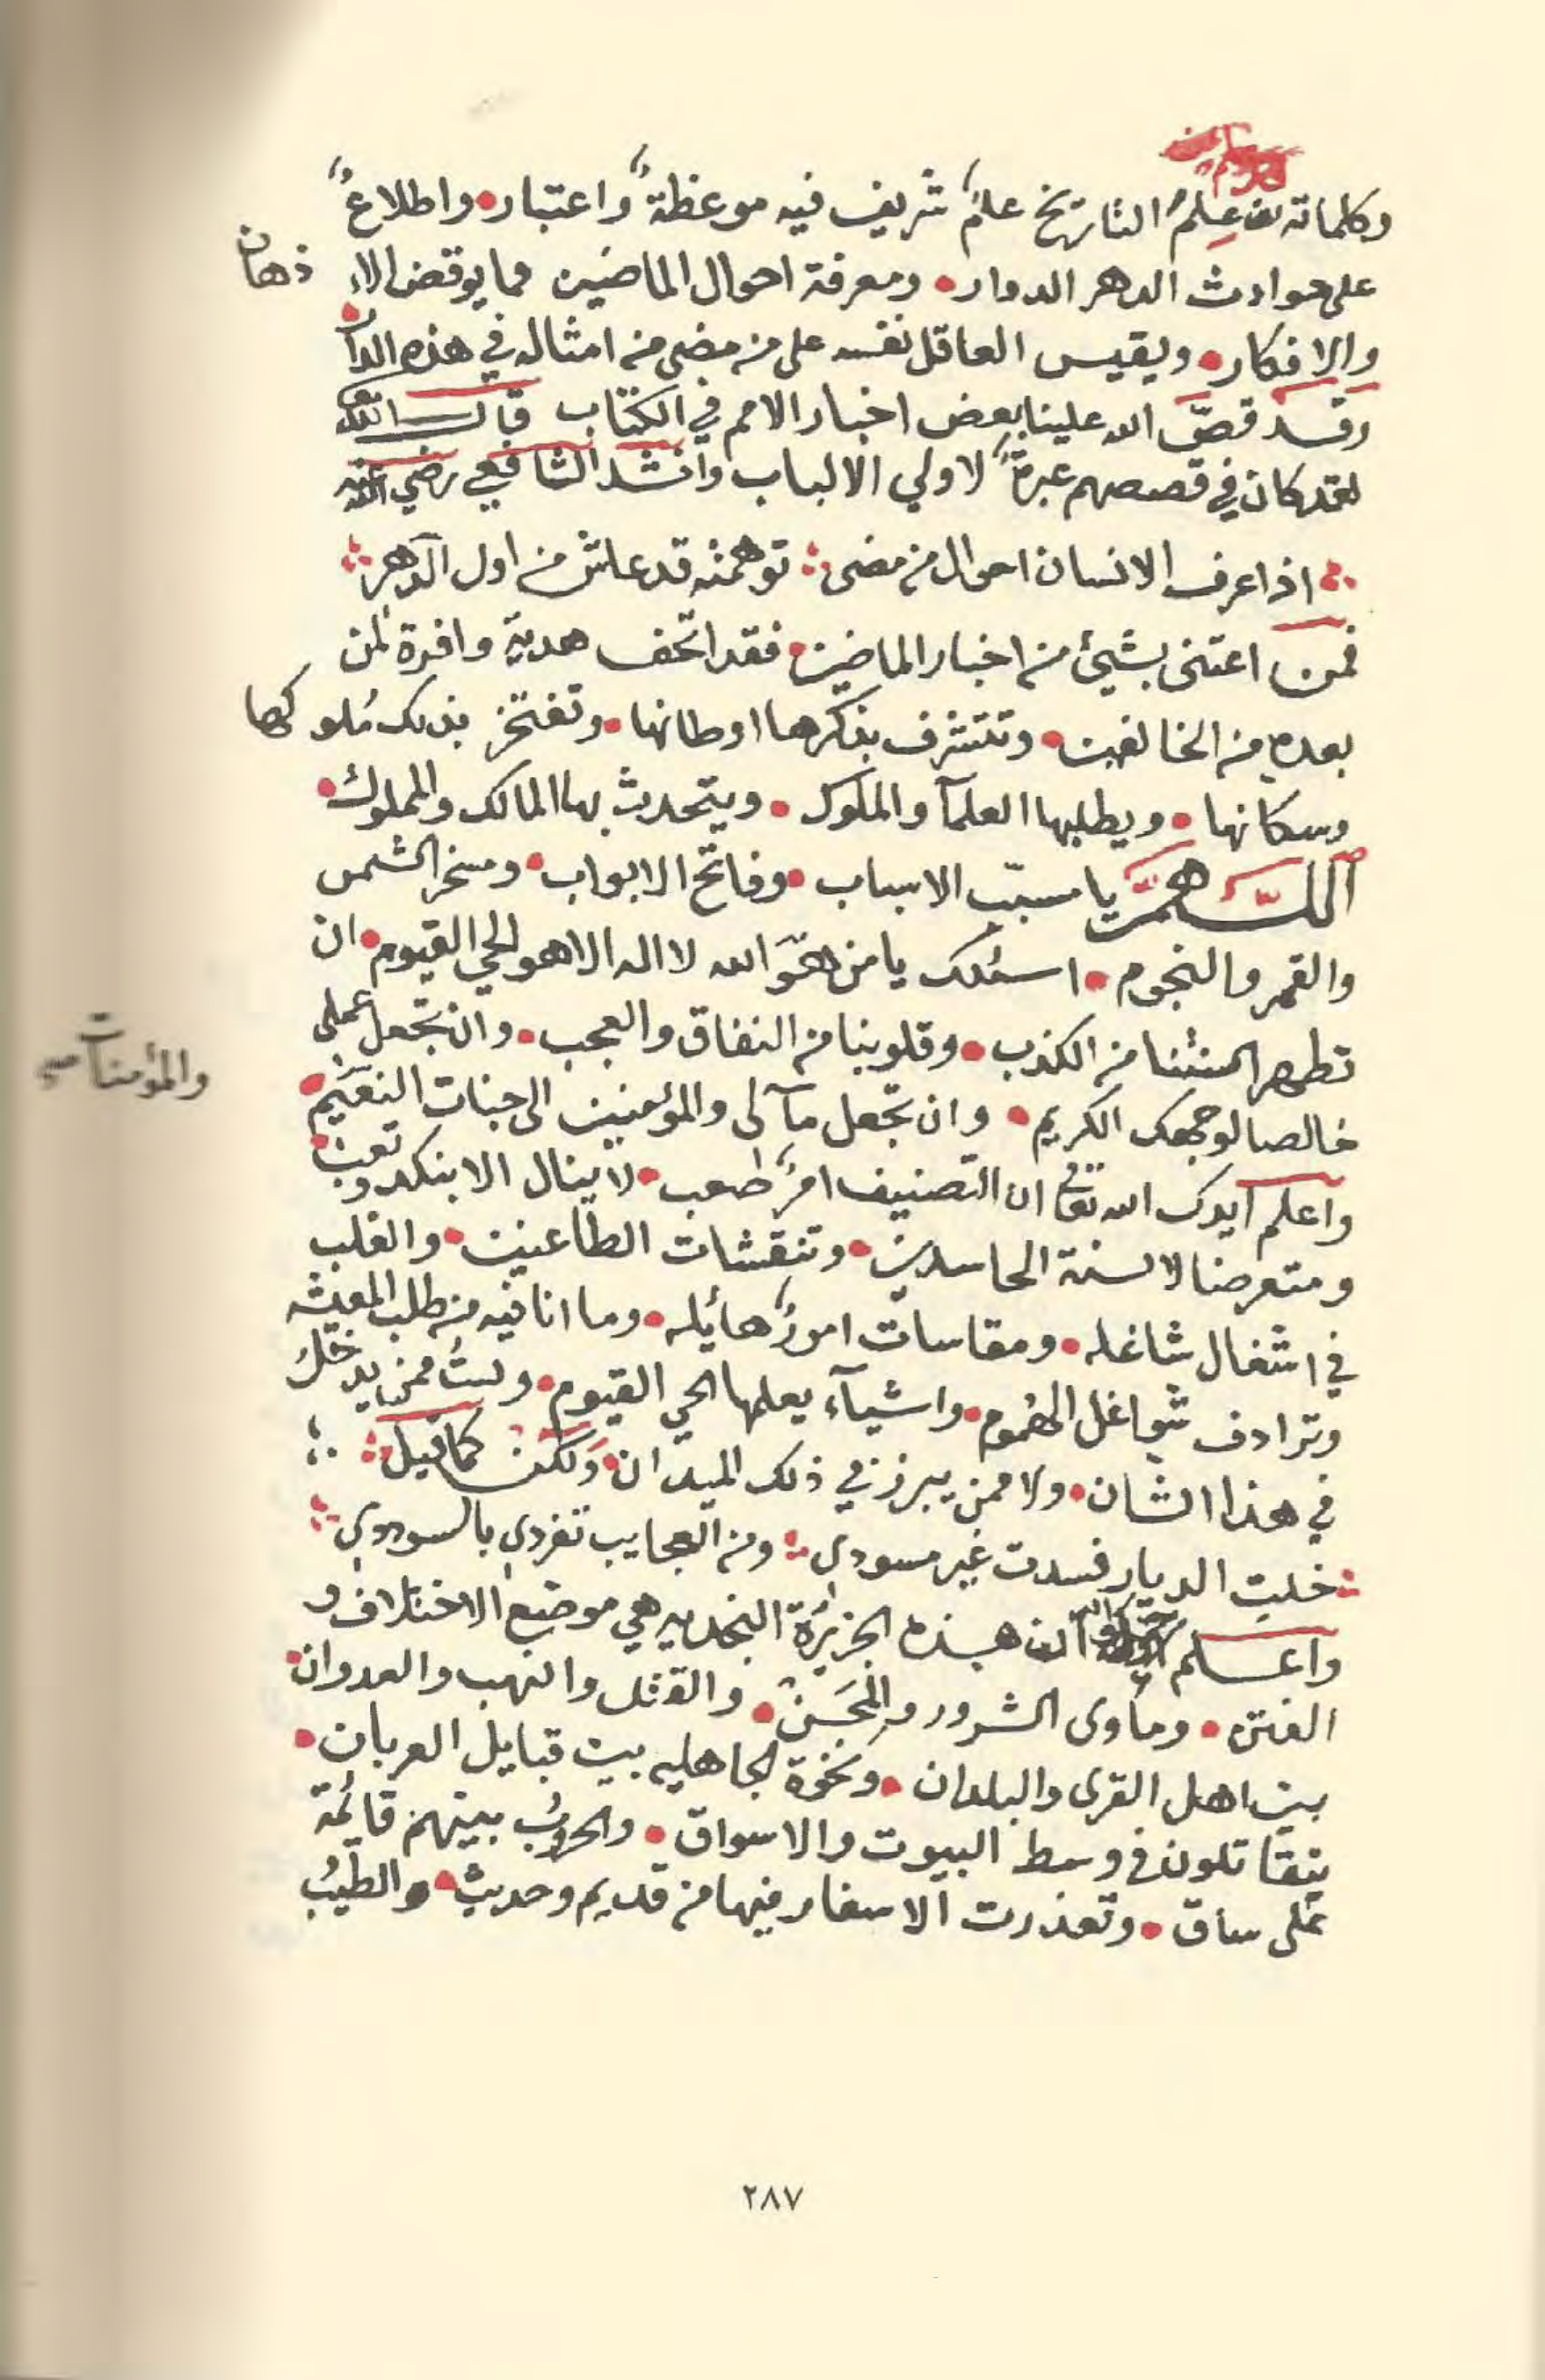 وكلماته علمُ التاريخ علمٌ شريف فيه موعظةٌ واعتبار • واطلاعٌ
على حوادث الدهر الدوار • ومعرفة احوال الماضين مما يوقض الا ذهان
والافكار • ويقيس العاقل نفسه على من مضى من امثاله في هذه الدار •
وقد قصّ الله علينا بعض اخبار الامم في الكتاب فقال تعالى
لقد كان في قصصهم عبرةٌ لاولي الالباب وانشد الشافعي رضي الله عنه
اذا عرف الانسان احوال من مضى ∴ توهمته قد عاش من اول الدهر ∴
فمن اعتنى بشيئ من اخبار الماضين • فقد اتحف هدية وافرة لمن
بعده من الخالفين • وتتشرف بذكرها اوطانها • وتفتخر بذلك مُلوكها
وسكانها • ويطلبها العلمآ والملوك • ويتحدث بها المالك والمملوك •
اللّهمّ يا مسبّب الاسباب • وفاتح الابواب • ومسخر الشمس
والقمر والنجوم • اسئلك يا من هوَ الله لا اله الا هو الحي القيوم • ان
تطهر السنتنا من الكذب • وقلوبنا من النفاق والعجب • وان تجعل عملي
خالصا لوجهك الكريم • وان تجعل مآلى والمؤمنين الى جنات النعيم •
والمؤمنات صح
واعلم ايدك الله تعالى ان التصنيف امرٌ صعب • لا ينال الا بنكد وتعب •
ومتعرضا لالسنة الحاسدين • وتنقشات الطاعنين • والقلب
في اشغال شاغله • ومقاسات امورٌ هائله • وما انا فيه من طلب المعيشه
وترادف شواغل الهُموم • واشيآء يعلمها الحي القيوم • ولستُ ممن يدخلُ
في هذا الشان • ولا ممن يبرز في ذلك الميدان • ولكن كما قيل ∴
خلت الديار فسدت غير مسودي ∴ ومن العجايب تفردي بالسوددي ∴
واعلم ان هذه الجزيرة النجديه هي موضع الاختلاف و
الفتن • وماوى الشرور والمحَن • والقتل والنهب والعدوان •
بين اهل القرى والبلدان • ونخوة الجاهليه بين قبايل العربان •
يتقاتلون في وسط البيوت والاسواق • والحروُب بينهم قائمة
على ساق • وتعذرت الاسفار فيها من قديم وحديث • والطيبُ
٢٨٧